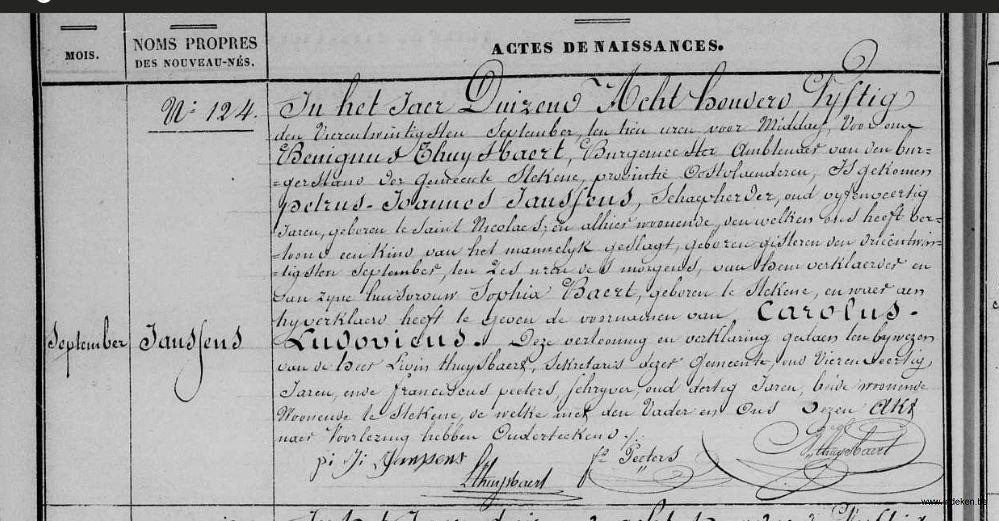 MOIS.
NOMS PROPRES
DES NOUVEAU-NÉS.
ACTES DE NAISSANCES.
September
Janssens
N: 124.
In het Jaer Duizend Acht honderd Vyftig
den Vierentwintigsten September, ten tien uren voor Middag, Voor ons
Benignus Thuysbaert, Burgemeester Ambtenaer van den bur=
=gerstand der Gemeente Stekene, provintie Oostvlaenderen, Is gekomen
petrus-Joannes Janssens, Schaepherder, oud vyfenveertig
Jaren, geboren te Saint Nicolaes, en alhier woonende, den welken ons heeft ver=
=toond een kind van het mannelyk geslagt, geboren gisteren den drieëntwin=
=tigsten September, ten zes uren des morgends, van hem verklaerder en
van zyne huisvrouw Sophia Baert, geboren te Stekene, en waer aen
hy verklaerd heeft te geven de voornaemen van Carolus-
Ludovicus. Deze vertooning en verklaring gedaen ten bywezen
van de heer Livin thuysbaert, Sekretaris dezer Gemeente, oud Vierenveertig
Jaren, ende franciscus peeters, schryver, oud dertig Jaren, beide woonende
Woonende te Stekene, de welke met den Vader en Ons dezen Akt
naer Voorlezing hebben Onderteekend
pi Ji Janssens
LThuysbaert
fs Peeters
BThuysbaert